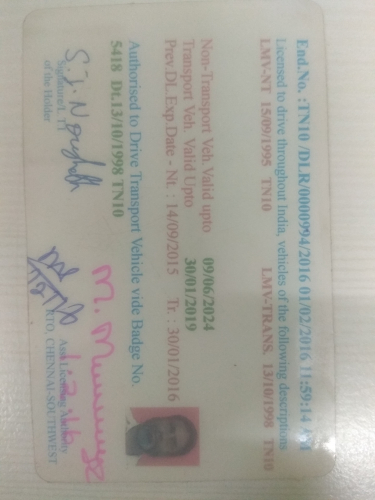 End.No. :TN10 /DLR/0000994/2016 01/02/2016 11:59:14
Licensed to drive throughout India, vehicles of the following descriptions
LMV-NT 15/09/1995 TN10 LMV-TRANS. 13/10/1998 TN10
Non-Transport Veh Valid upto 09/06/2024
Transport Veh. Valid Upto 30/01/2019
Prev.DL.Exp.Date - Nt : 14/09/2015 Tr. : 30/01/2016
Authorised to Drive Transport Vehicle vide Badge No.
5418 Dt.13/10/1998 TN10
Signature/L.T
of the Holder
Licensing Authority
RTO, CHENNAI-SOUTHWEST